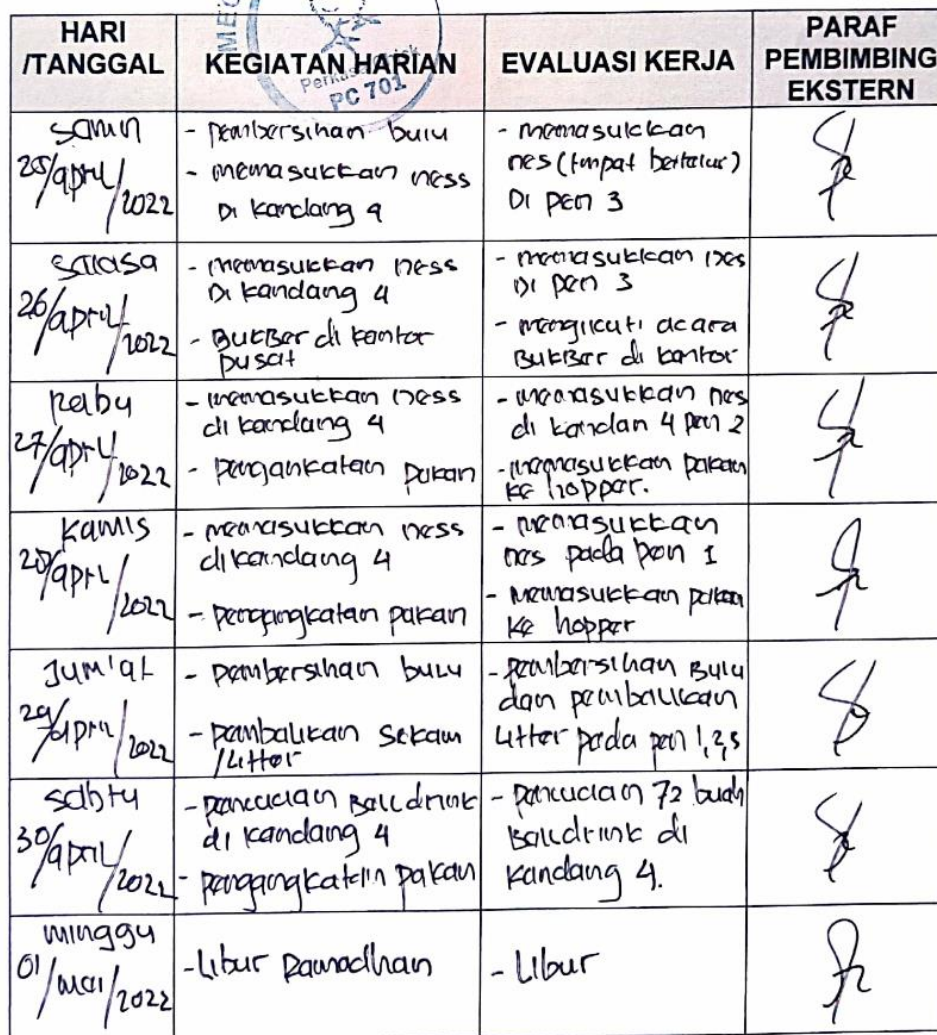 HARI
/TANGGAL
KEGIATAN HARIAN
EVALUASI KERJA
PARAF
PEMBIMBING
EKSTERN
PC 701
Senin
25/april/2022
- pembersihan bulu
- memasukkan ness
Di kandang 4
- memasukkan
nes (tmpat bertelur)
Di pen 3
Selasa
26/april/2022
- memasukkan ness
Di kandang 4
- BukBer di kantor
pusat
- memasukkan nes
Di pen 3
- mengikuti acara
BukBer di kantor
Rabu
27/april/2022
- memasukkan ness
di kandang 4
- pengankatan pakan
- memasukkan nes
di kandan 4 pen 2
- memasukkan pakan
ke hopper.
Kamis
28/april/2022
- memasukkan ness
di kandang 4
- pengangkatan pakan
- memasukkan
nes pada pen 1
- memasukkan pakan
ke hopper
Jum'at
29/april/2022
- pembersihan bulu
- pembalikan sekam
/Litter
- pembersihan Bulu
dan pembalikan
Litter pada pen 1,2,3
Sabtu
30/april/2022
- pencucian Belldrink
di kandang 4
- pengangkatan pakan
- pencucian 72 buah
Belldrink di
kandang 4.
minggu
01/mei/2022
- Libur Ramadhan
- Libur